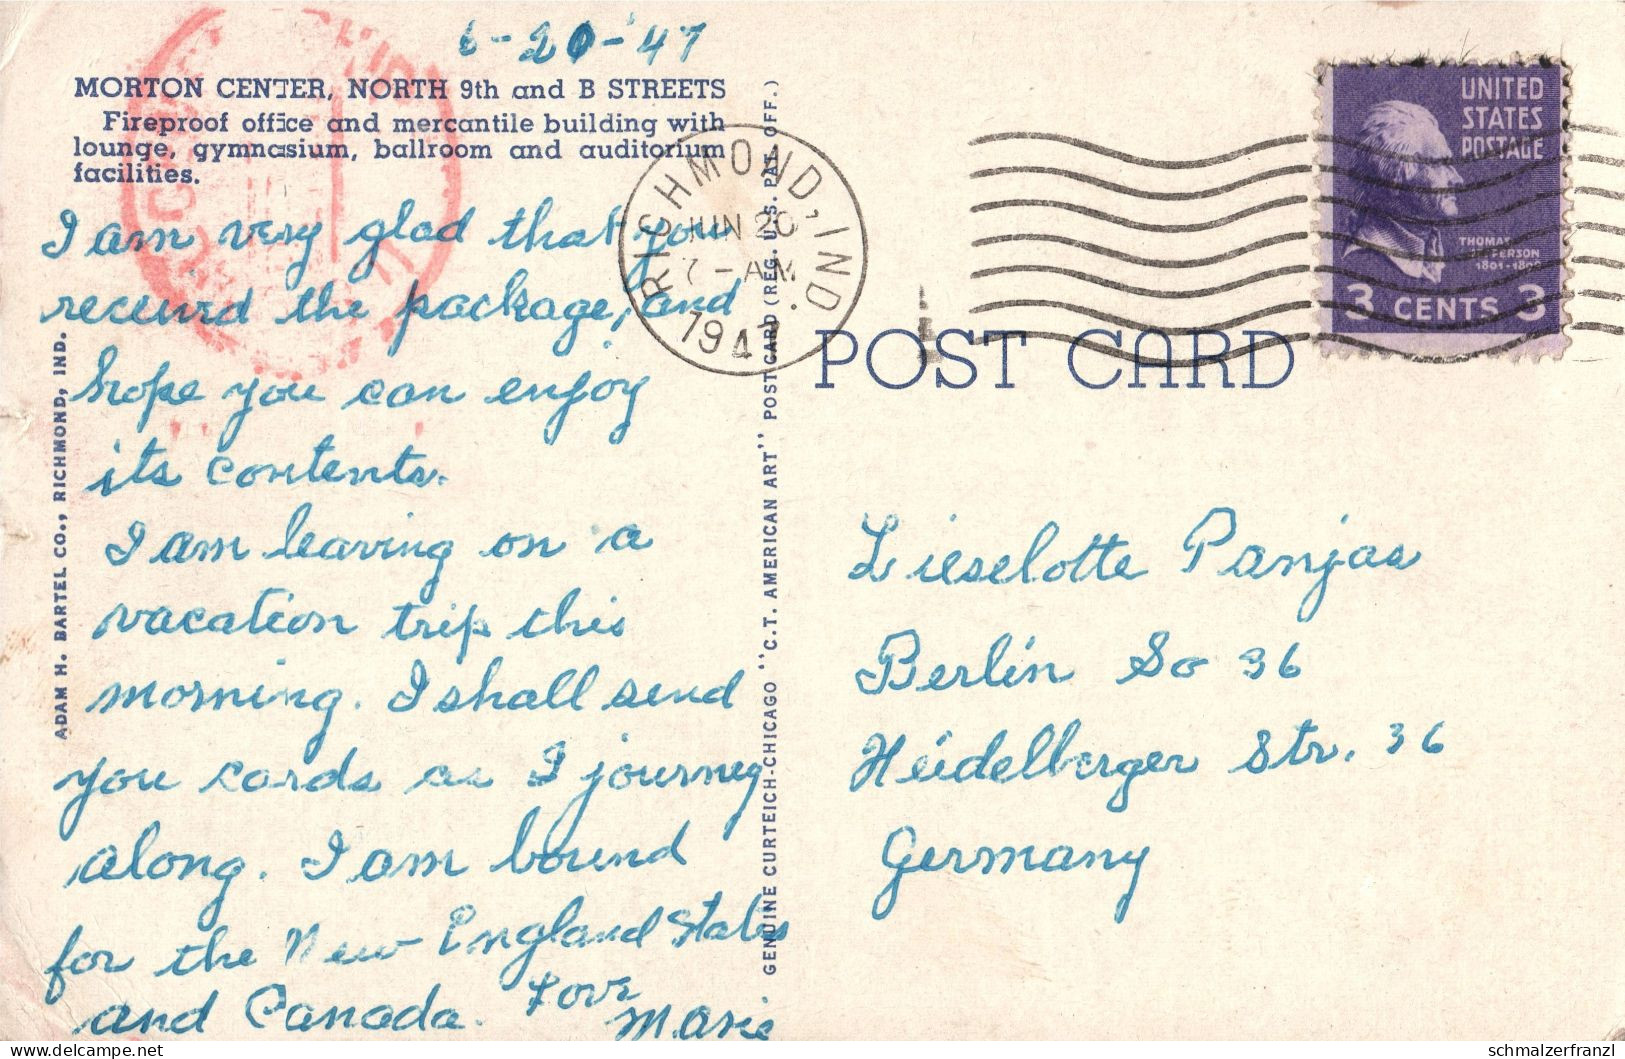 6-20-'47
MORTON CENTER, NORTH 9th and B STREETS
Fireproof office and mercantile building with
lounge, gymnasium, ballroom and auditorium
facilities.
I am very glad that you
received the package, and
hope you can enjoy
its contents.
I am leaving on a
vacation trip this
morning. I shall send
you cards as I journey
along. I am bound
for the New England States
and Canada. Love
Marie
ADAM H. BARTEL CO., RICHMOND, IND.
GENUINE CURTEICH-CHICAGO "C.T. AMERICAN ART" POSTCARD (REG. U.S. PAT. OFF.)
RICHMOND, IND.
JUN 20
7-AM
194
POST CARD
UNITED
STATES
POSTAGE
THOMAS
JEFFERSON
3 CENTS 3
Lieselotte Panjas
Berlin So 36
Heidelberger Str. 36
Germany
© schmalzerfranzl
delcampe.net